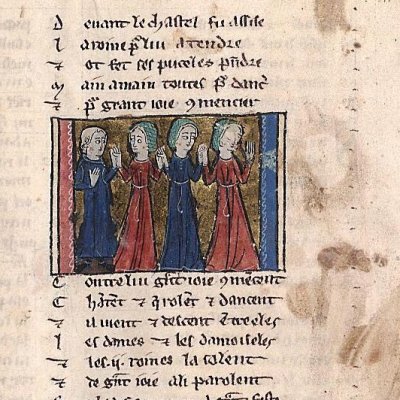 D euant le chastel fu assise
L a roine pʳ lui atendre
⁊ ot fet ses puceles prẽdre
M ain a main toutes pʳ dancʳ
⁊ pʳ grant ioie ꝯmencier
C ontre lui gͣnt ioie ꝯmẽcent
C hãtẽt ⁊ q̃rolẽt ⁊ dancent
⁊ il uient ⁊ descent ẽtre eles
L es dames ⁊ les damoiseles
⁊ les .ii. roines la solent
⁊ de gͣnt ioie a li parolent